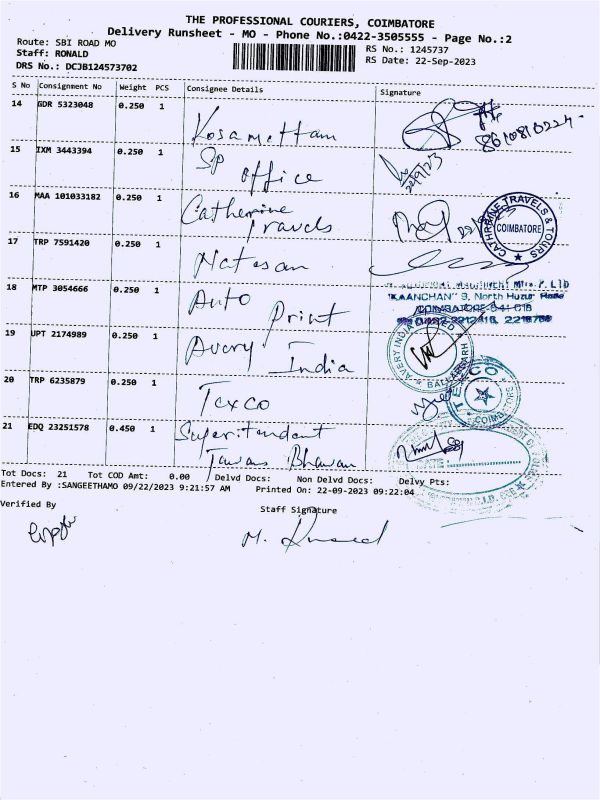 THE PROFESSIONAL COURIERS, COIMBATORE
Delivery Runsheet - MO - Phone No.:0422-3505555 - Page No.:2
Route: SBI ROAD MO
RS No.: 1245737
Staff: RONALD
RS Date: 22-Sep-2023
DRS No.: DCJB124573702
S No Consignment No Weight PCS Consignee Details Signature
14 GDR 5323048 0.250 1 Kosamattam
15 IXM 3443394 0.250 1 SP office
16 MAA 101033182 0.250 1 Catherine Travels
CATHRINE TRAVELS & TOURS COIMBATORE
17 TRP 7591420 0.250 1 Natesan
18 MTP 3054666 0.250 1 Auto Print
"KAANCHAN" 9, North Huzur Road
COIMBATORE-641 018
19 UPT 2174989 0.250 1 Avery India
AVERY INDIA BALLABGARH
20 TRP 6235879 0.250 1 Texco
TEXCO COIMBATORE
21 EDQ 23251578 0.450 1 Superitendent Tawas Bhavan
DATE
Tot Docs: 21 Tot COD Amt: 0.00 Delvd Docs: Non Delvd Docs: Delvy Pts:
Entered By :SANGEETHAMO 09/22/2023 9:21:57 AM Printed On: 22-09-2023 09:22:04
Verified By
Staff Signature